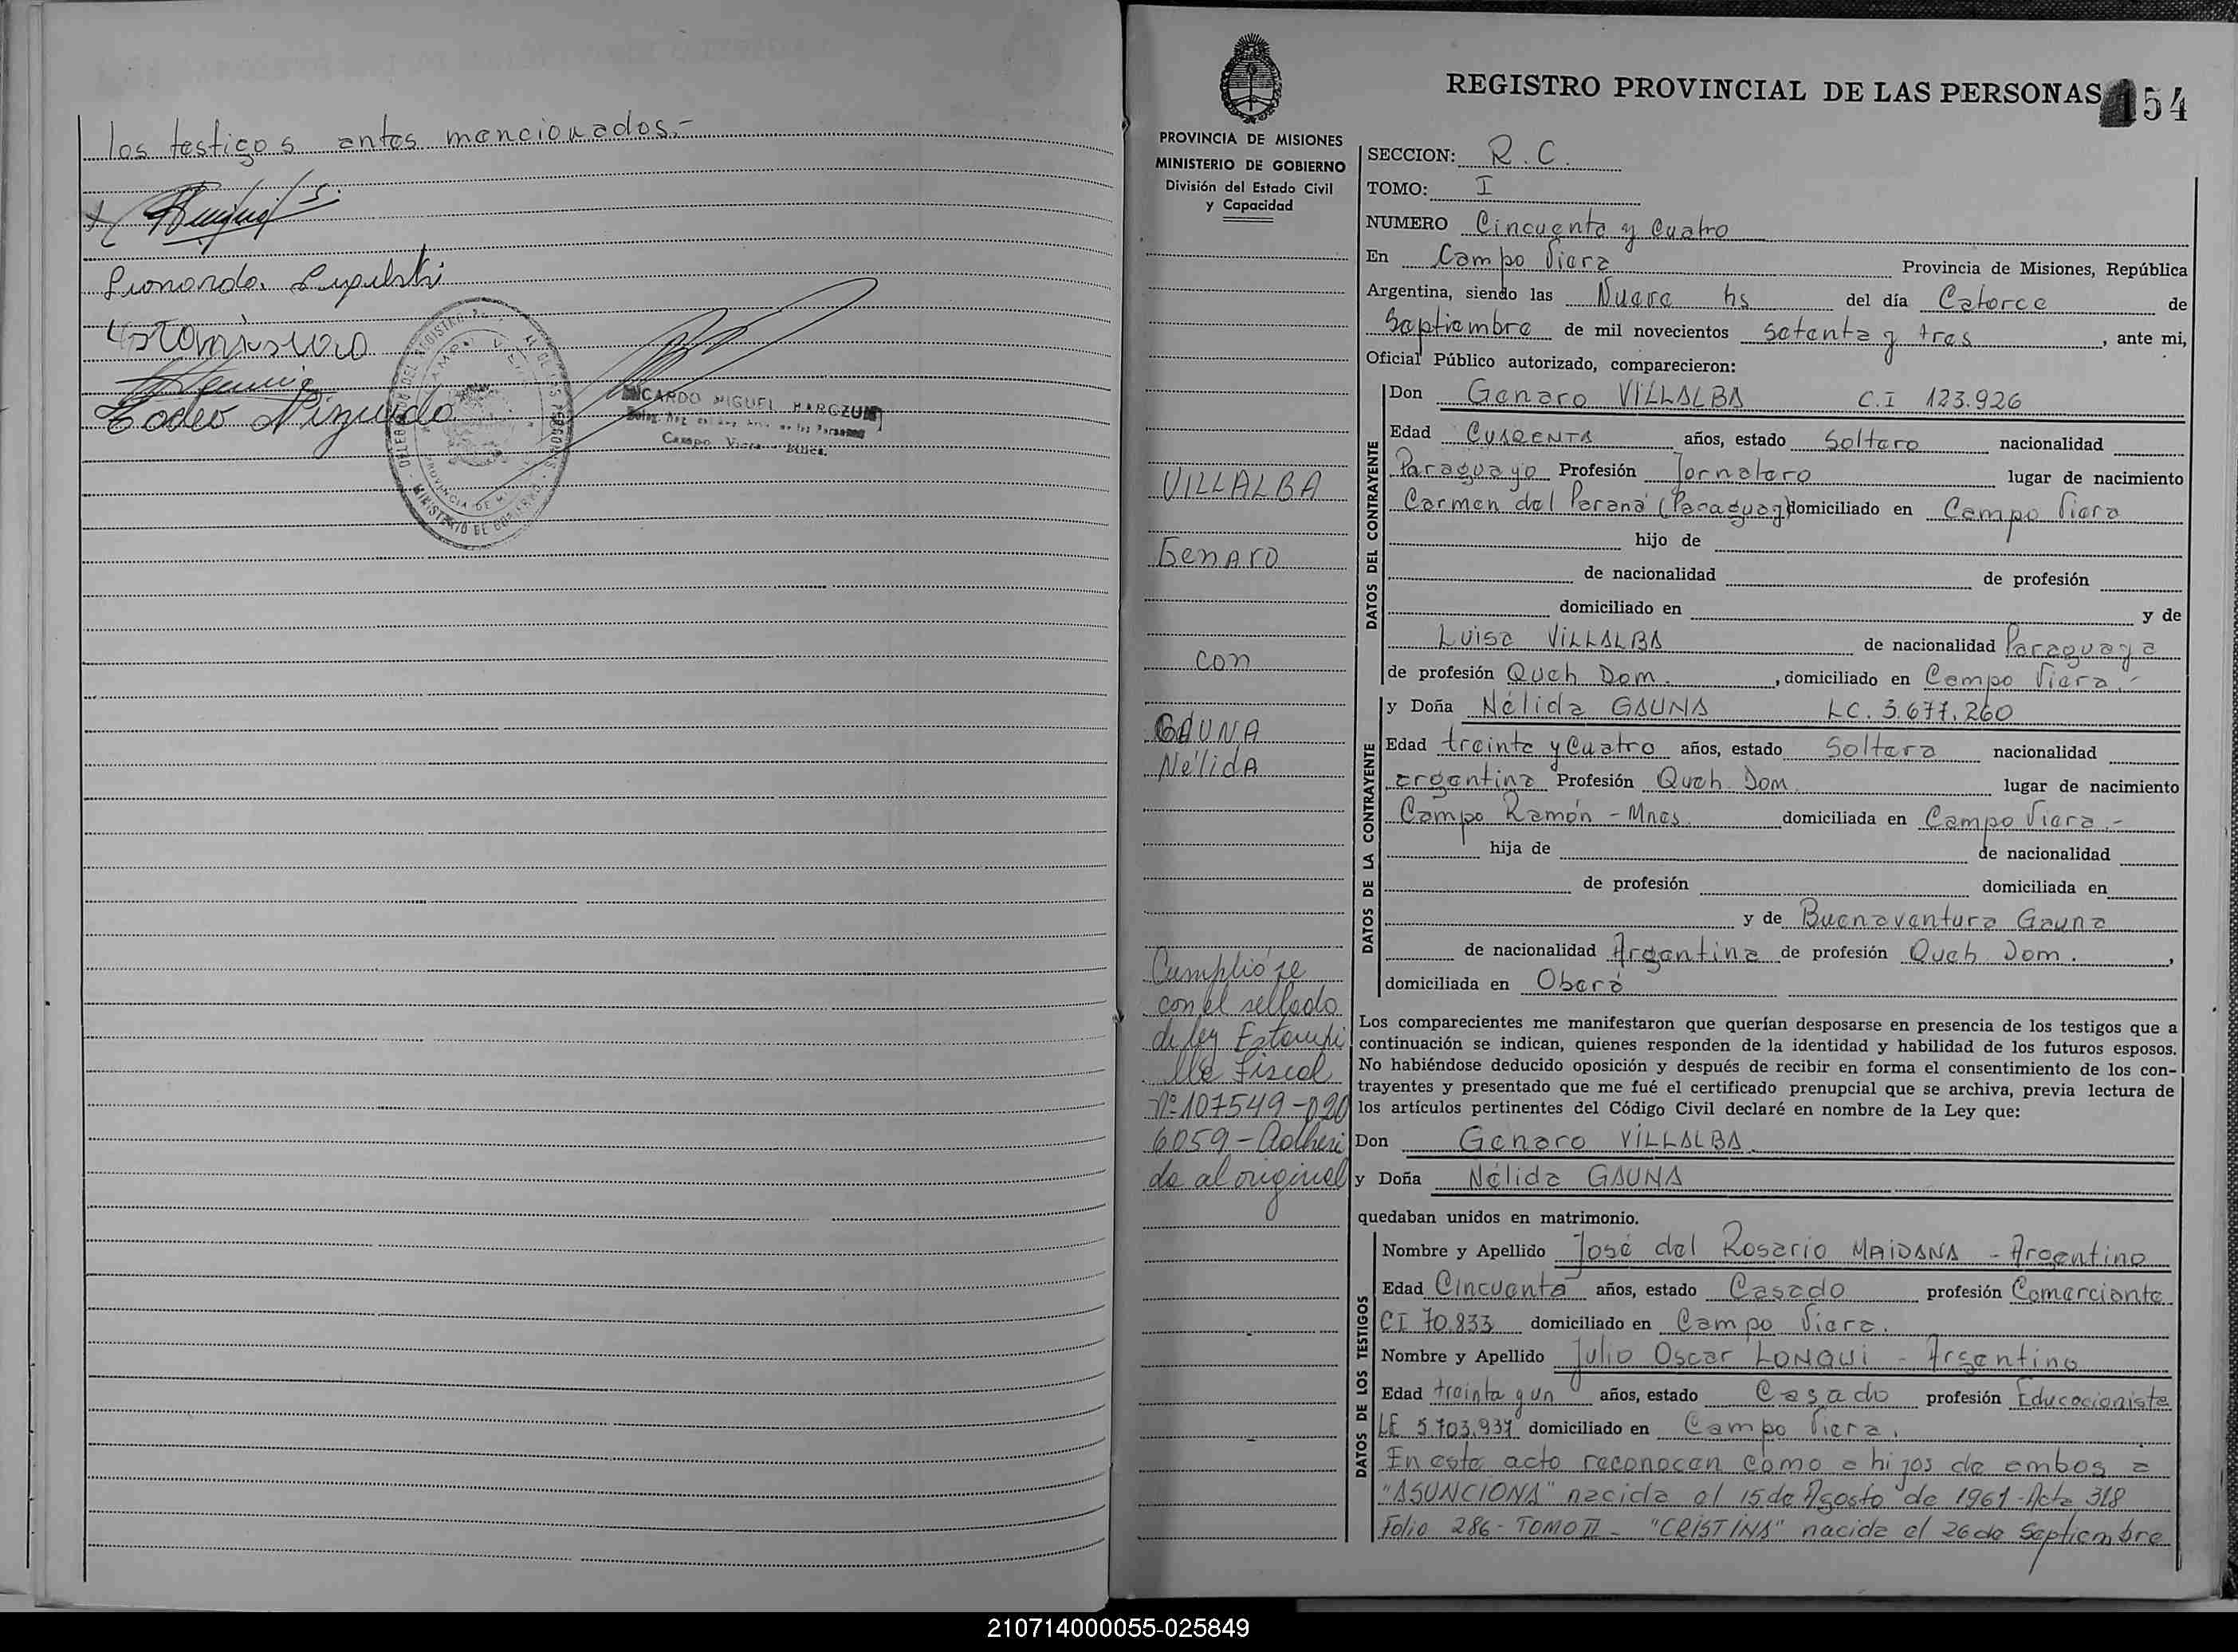 los testigos antes mencionados.-
Tadeo
RICARDO MIGUEL HARCZUK
Campo Viera - Mnes.
REGISTRO PROVINCIAL DE LAS PERSONAS 154
PROVINCIA DE MISIONES
MINISTERIO DE GOBIERNO
División del Estado Civil
y Capacidad
VILLALBA
Genaro
con
GAUNA
Nélida
Cumplióse
con el sellado
de ley Estampi
lla Fiscal
Nº 107549-020
6059 - Adheri
da al original
SECCION: R.C.
TOMO: I
NUMERO Cincuenta y Cuatro
En Campo Viera Provincia de Misiones, República
Argentina, siendo las Nueve hs del día Catorce de
Septiembre de mil novecientos setenta y tres, ante mi,
Oficial Público autorizado, comparecieron:
DATOS DEL CONTRAYENTE
Don Genaro VILLALBA C.I 123.926
Edad CUARENTA años, estado Soltero nacionalidad
Paraguayo Profesión Jornalero lugar de nacimiento
Carmen del Paraná (Paraguay) domiciliado en Campo Viera
hijo de
de nacionalidad de profesión
domiciliado en y de
Luisa VILLALBA de nacionalidad Paraguaya
de profesión Queh. Dom. , domiciliado en Campo Viera.-
DATOS DE LA CONTRAYENTE
y Doña Nélida GAUNA LC. 3.677.260
Edad treinta y Cuatro años, estado Soltera nacionalidad
argentina Profesión Queh. Dom. lugar de nacimiento
Campo Ramón - Mnes. domiciliada en Campo Viera.-
hija de de nacionalidad
de profesión domiciliada en
y de Buenaventura Gauna
de nacionalidad Argentina de profesión Queh. Dom. ,
domiciliada en Oberá
Los comparecientes me manifestaron que querían desposarse en presencia de los testigos que a
continuación se indican, quienes responden de la identidad y habilidad de los futuros esposos.
No habiéndose deducido oposición y después de recibir en forma el consentimiento de los con-
trayentes y presentado que me fué el certificado prenupcial que se archiva, previa lectura de
los artículos pertinentes del Código Civil declaré en nombre de la Ley que:
Don Genaro VILLALBA
y Doña Nélida GAUNA
quedaban unidos en matrimonio.
DATOS DE LOS TESTIGOS
Nombre y Apellido José del Rosario MAIDANA - Argentino
Edad Cincuenta años, estado Casado profesión Comerciante
CI 70.833 domiciliado en Campo Viera.
Nombre y Apellido Julio Oscar LONQUI - Argentino
Edad treinta y un años, estado Casado profesión Educacionista
LE 5.703.937 domiciliado en Campo Viera.
En este acto reconocen como a hijos de ambos a
"ASUNCIONA" nacida el 15 de Agosto de 1961 - Acta 318
Folio 286 - TOMO II - "CRISTINA" nacida el 26 de Septiembre
210714000055-025849